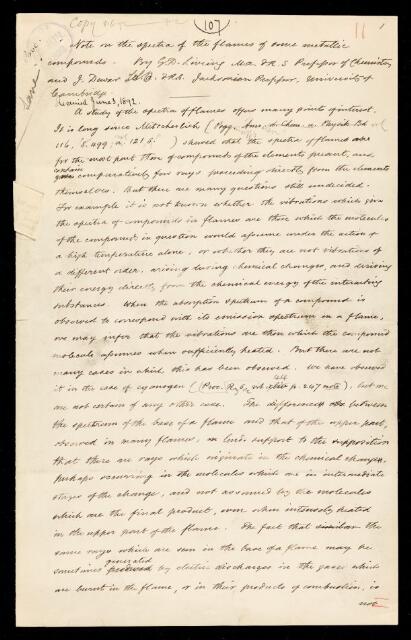 Copy
(107)
11
1
Note on the spectra of the flames of some metallic
compounds. By G.D. Liveing M.A. F.R.S Professor of Chemistry
and J. Dewar F.R.S. Jacksonian Professor, University of
Cambridge.
Received June 3, 1892.
A study of the spectra of flames offers many points of interest.
It is long since Mitscherlich (Pogg. Ann. d. Chem. u. Physik Bd
116, S. 499, u 121 S. ) showed that the spectra of flames are
for the most part those of compounds of the elements present, and
contain comparatively few rays proceeding directly from the elements
themselves. But there are many questions still undecided.
For example it is not known whether the vibrations which give
the spectra of compounds in flames are those which the molecules
of the compounds in question would assume under the action of
a high temperature alone, or whether they are not vibrations of
a different order, arising during chemical changes, and deriving
their energy directly from the chemical energy of the interacting
substances. When the absorption spectrum of a compound is
observed to correspond with its emission spectrum in a flame,
we may infer that the vibrations are those which the compound
molecule assumes when sufficiently heated. But there are not
many cases in which this has been observed. We have observed
it in the case of cyanogen (Proc. R. Soc. vol. 44 p. 247 note), but we
are not certain of any other case. The differences between
the spectrum of the base of a flame and that of the upper part,
observed in many flames, lends support to the supposition
that there are rays which originate in the chemical changes,
perhaps occurring in the molecules which are in intermediate
stages of the change, and not assumed by the molecules
which are the final product, even when intensely heated
in the upper part of the flame. The fact that the
same rays which are seen in the base of a flame may be
sometimes generated by electric discharges in the gases which
are burnt in the flame, or in their products of combustion, is
not